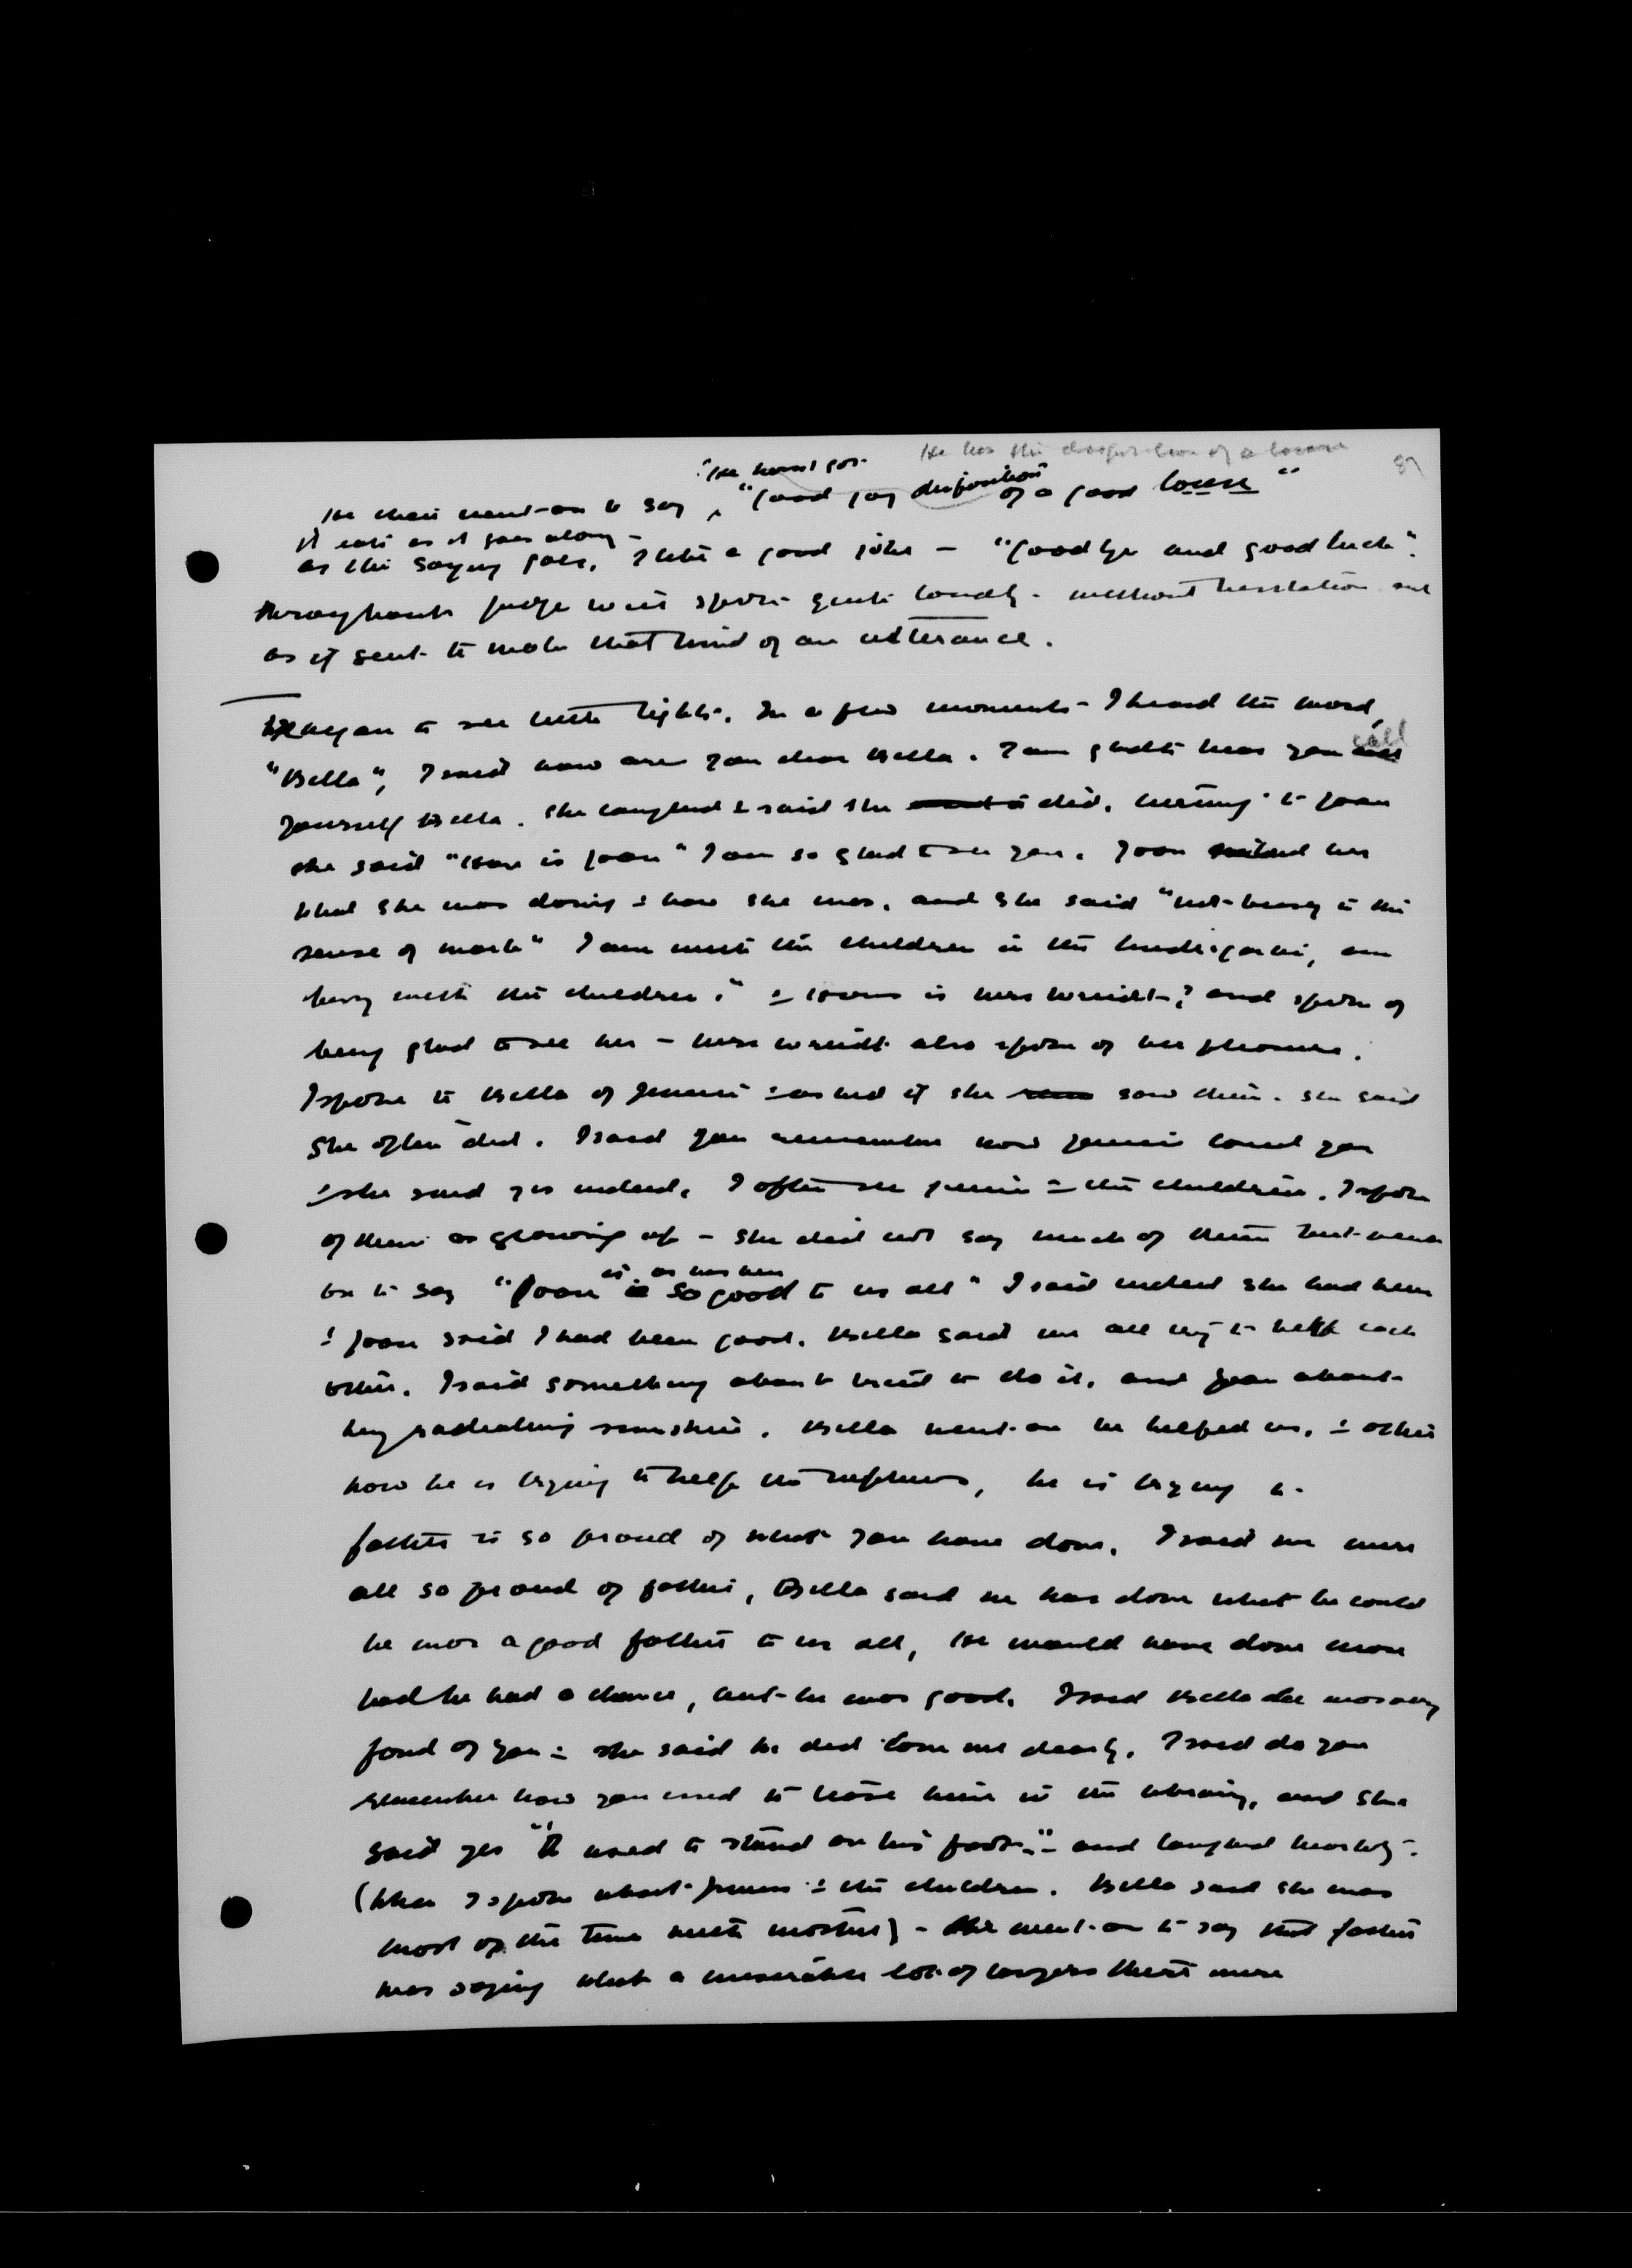 He has the disposition of a louse
87
"He must got
He then went on to say, "Good joy disposition of a good louse"
it eats as it goes along -
as the saying goes, I like a good joke - "Goodbye and good luck".
Throughout Judge went spoke quite loudly - without hesitation and
as if glad to make that kind of an utterance.
Began to see little lights. In a few moments - I heard the word,
"Bella", I said how are you dear Bella. I am glad to hear you call
yourself Bella. She laughed & said she did. turning to Joan
she said "How is Joan" I am so glad to see you. Joan asked her
what she was doing & how she was, and she said "not busy in the
sense of work" I am with the children in the kindergarten, am
busy with the children." & How is Miss Wright? and spoke of
being glad to see her - Miss Wright also spoke of her pleasure.
I spoke to Bella of Jennie & asked if she saw them. She said
she often did. I said you remember how Jennie loved you
& she said yes indeed, I often see Jennie & the children. I spoke
of them as growing up - she did not say much of them but went
is as has been
on to say "Joan is so good to us all" I said indeed she had been
& Joan said I had been good. Bella said we all try to help each
other. I said something about tried to do it, and Joan about
her radiating sunshine. Bella went on he helped us, & other
how he is trying to help the nephews, he is trying to.
father is so proud of what you have done. I said we were
all so proud of father, Bella said he has done what he could
he was a good father to us all, He would have done more
had he had a chance, but he was good. I said Bella he was very
fond of you & she said he did love me dearly. I said do you
remember how you used to tease him in the library, and she
said yes "I used to stand on his foot." - and laughed heartily -
(When I spoke about Jennie & the children. Bella said she was
most of the time with mother) - She went on to say that father
was saying what a miserable lot of lawyers there were